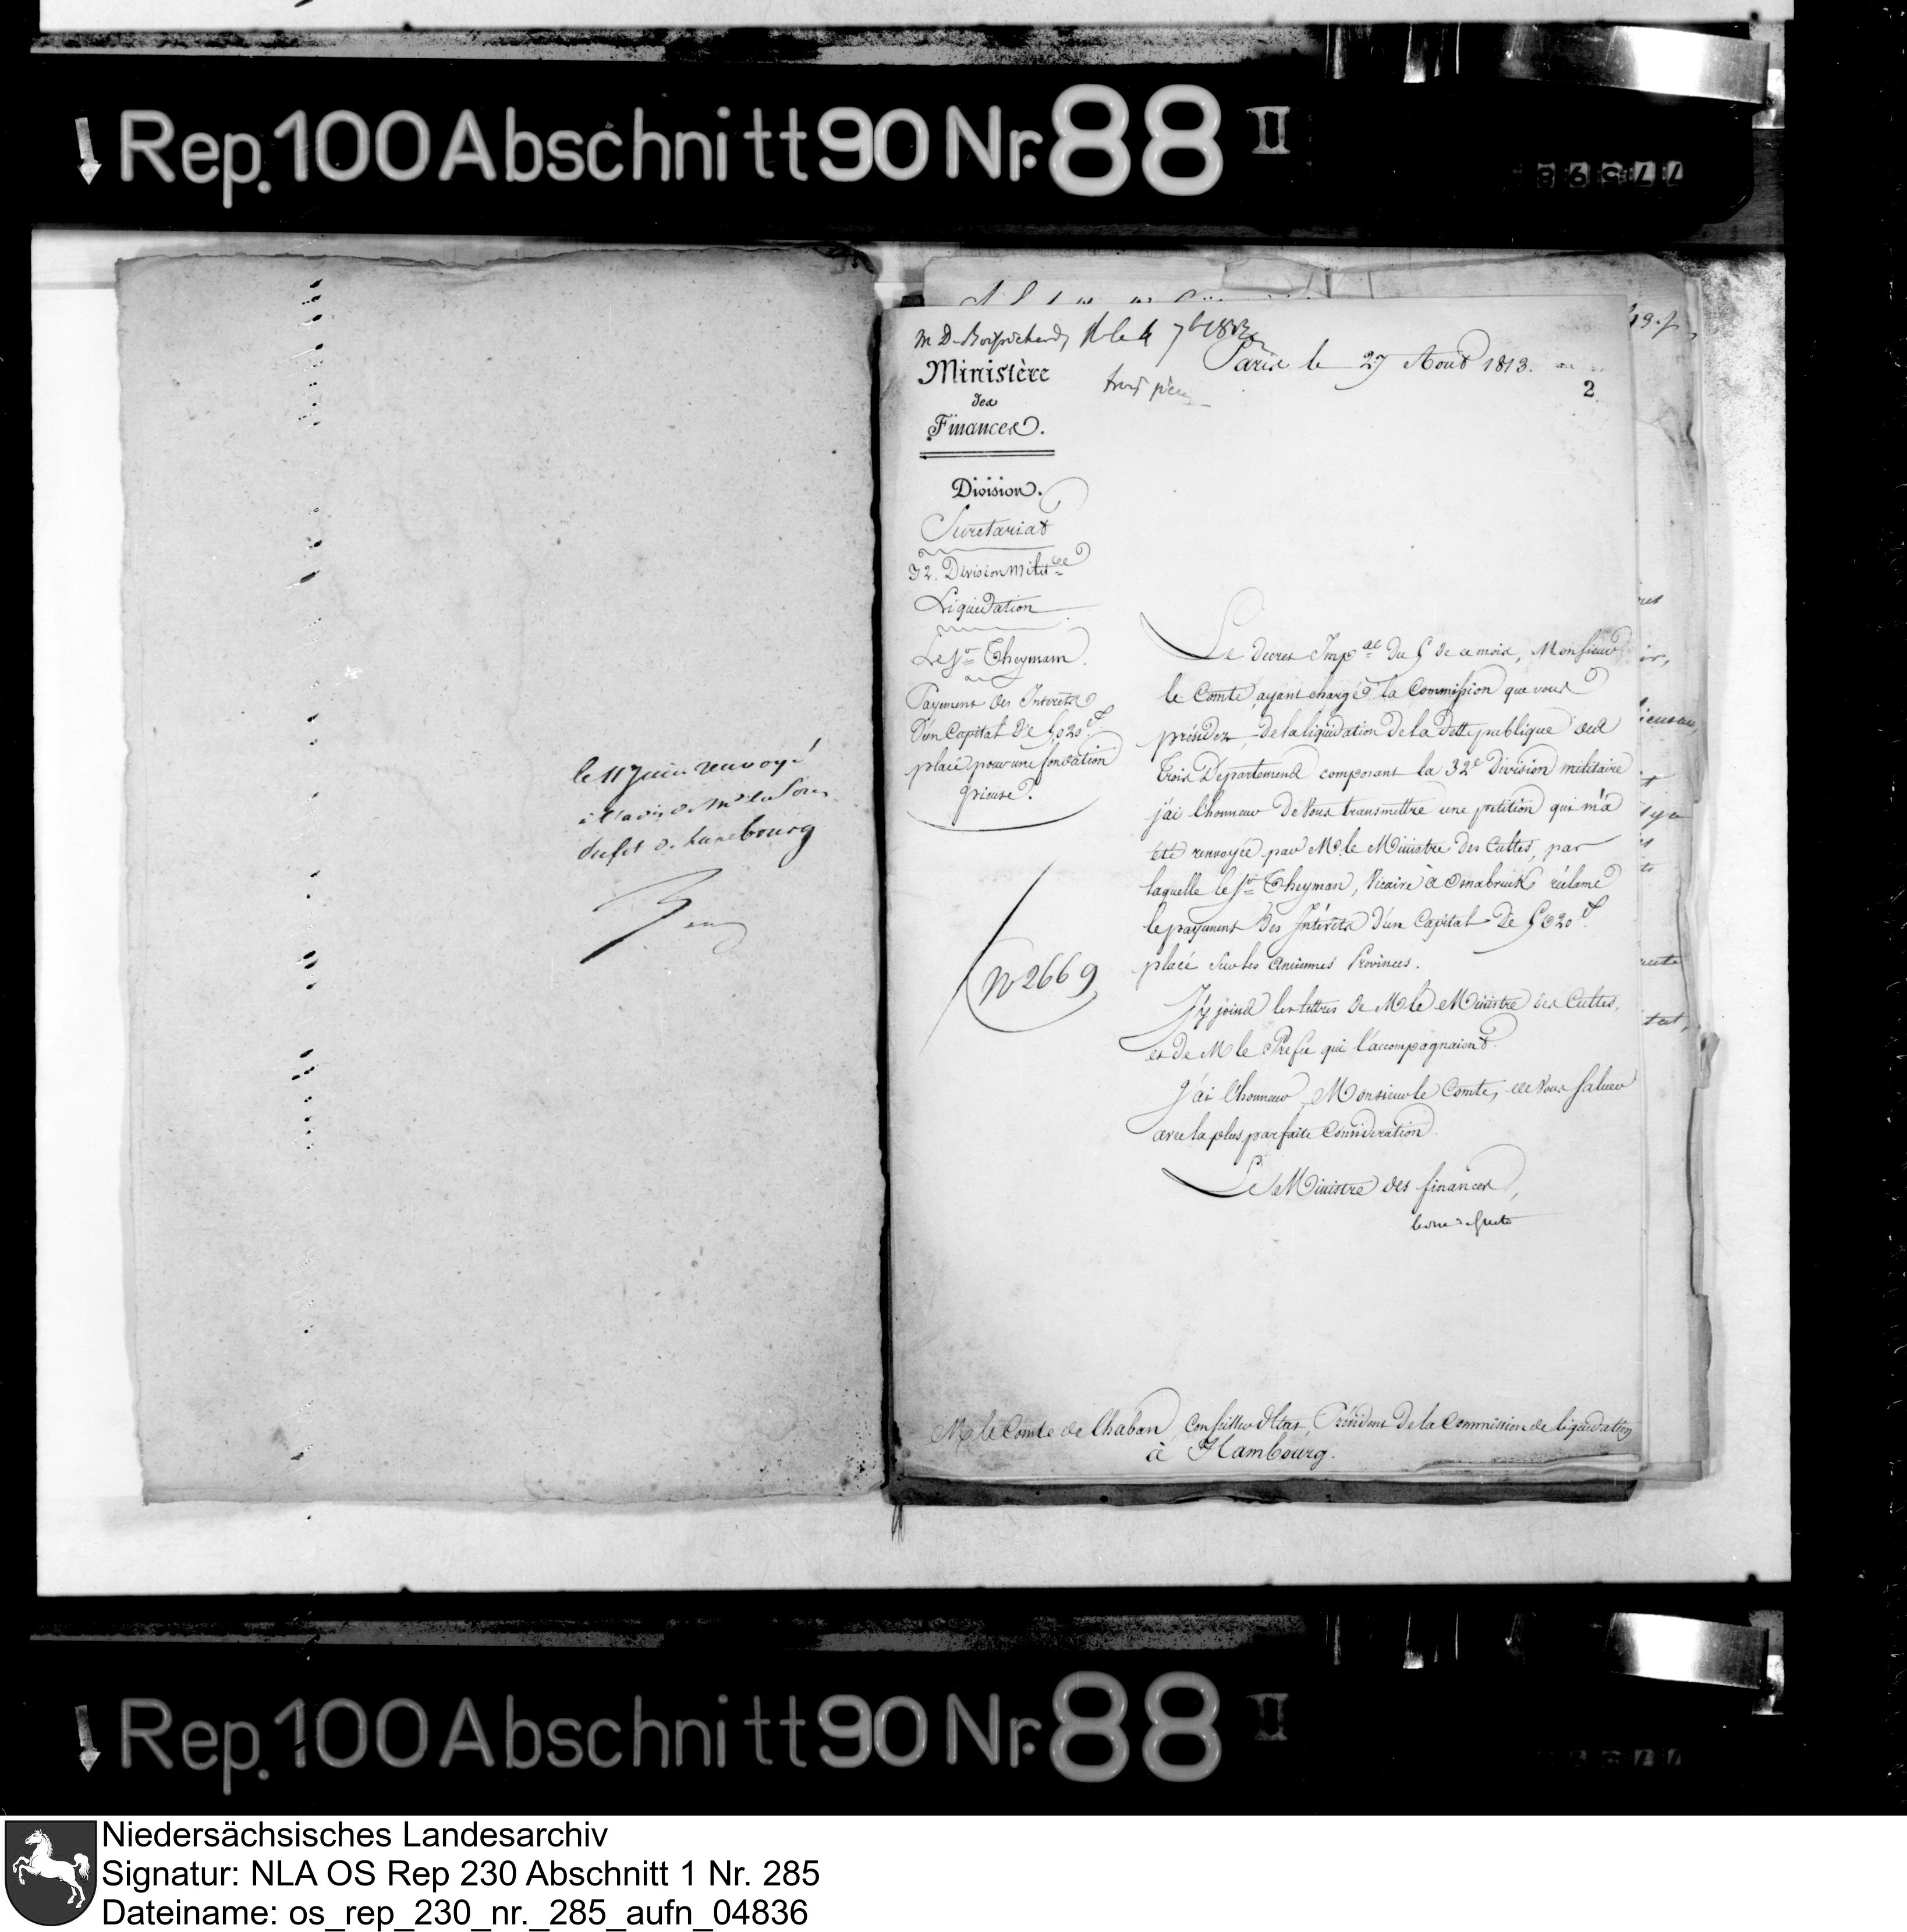 Rep. 100 Abschnitt 90 Nr. 88 II
77598
le 11 Juin renvoyé
à l'avis de Mr le Sous
du fet de Lunebourg
M. D. 7bre 1813
Paris le 27 Aout 1813.
trois pièces
2.
Ministère
des
Finances.
Division.
Secretariat
32. Division Milit.re
Liquidation
Le Sr. Theymann.
Payement des Interets
d'un Capital de 5,020 f
placé pour une fondation
pieuse.
No 2669
Le decret Imp.al du 5 de ce mois, Monsieur
le Comte, ayant chargé la Commission que vous
présidez, de la liquidation de la Dette publique des
trois Départemens composant la 32e Division militaire
j'ai l'honneur de Vous transmettre une petition qui m'a
été renvoyée par M. le Ministre des Cultes, par
laquelle le Sr. Theyman, Vicaire à Osnabruck réclame
le payement des Intérêts d'un Capital de 5020 f.
placé sur les anciennes Provinces.
J'y joins les lettres de M. le Ministre des Cultes,
et de M le Préfet qui l'accompagnaient.
J'ai l'honneur, Monsieur le Comte, de Vous saluer
avec la plus parfaite Consideration.
Le Ministre des finances,
M. le Comte de Chaban, Conseiller d'Etat, Président de la Commission de liquidation
à Hambourg.
Rep. 100 Abschnitt 90 Nr. 88 II
Niedersächsisches Landesarchiv
Signatur: NLA OS Rep 230 Abschnitt 1 Nr. 285
Dateiname: os_rep_230_nr._285_aufn_04836